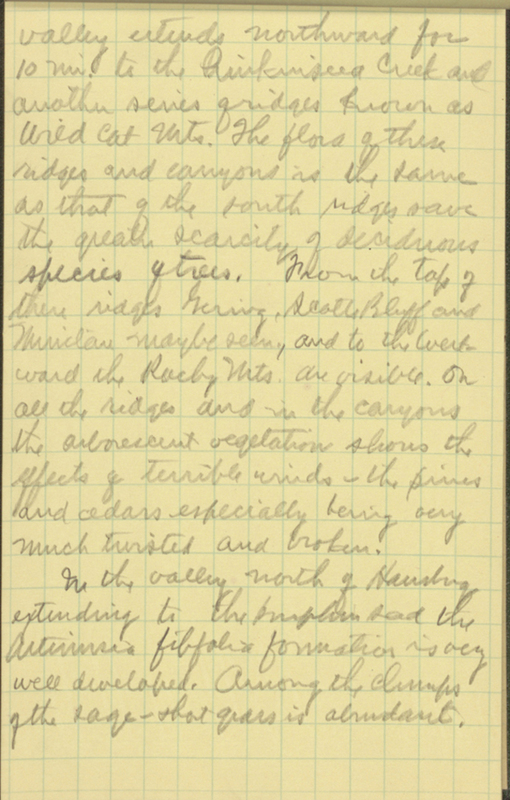 valley extends northward for
10 mi. to the Creek and
another series of ridges known as
Wild Cat Mts. The flora of these
ridges and canyons is the same
as that of the south ridges save
the greater scarcity of deciduous
species of trees. From the top of
these ridges Gering, Scotts Bluff and
may be seen, and to the West-
ward the Rocky Mts. are visible. On
all the ridges and in the canyons
the arborescent vegetation shows the
effects of terrible winds - the pines
and cedars especially being very
much twisted and broken.
In the valley north of
extending to the the
Artemisia filifolia formation is very
well developed. Among the clumps
of the sage - grass is abundant.